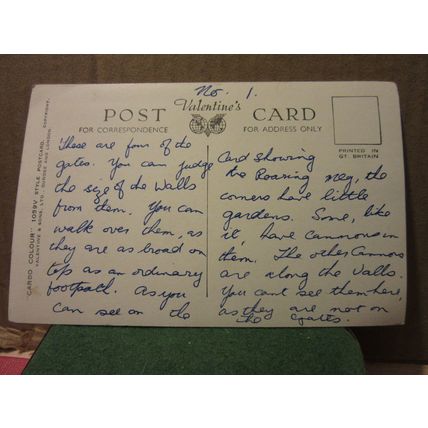 No. 1.
POST Valentine's CARD
FOR CORRESPONDENCE
FOR ADDRESS ONLY
PRINTED IN
GT. BRITAIN
"CARDO COLOUR" 1059V STYLE POSTCARD.
VALENTINE & SONS, LTD., DUNDEE AND LONDON.
COPYRIGHT.
These are four of the
gates. You can judge
the size of the Walls
from them. You can
walk over them, as
they are as broad on
top as an ordinary
footpath. As you
can see on the
Card showing
the Roaring Meg, the
corners have little
gardens. Some, like
it, have cannons in
them. The other Cannons
are along the Walls.
You can't see them here,
as they are not on
the Gates.